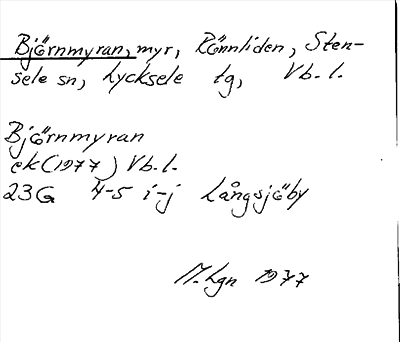 Björnmyran, myr, Rönnliden, Sten-
sele sn, Lycksele tg, Vb.l.
Björnmyran
ek(1977) Vb.l.
23G 4-5 i-j Långsjöby
M.Lgn 1977